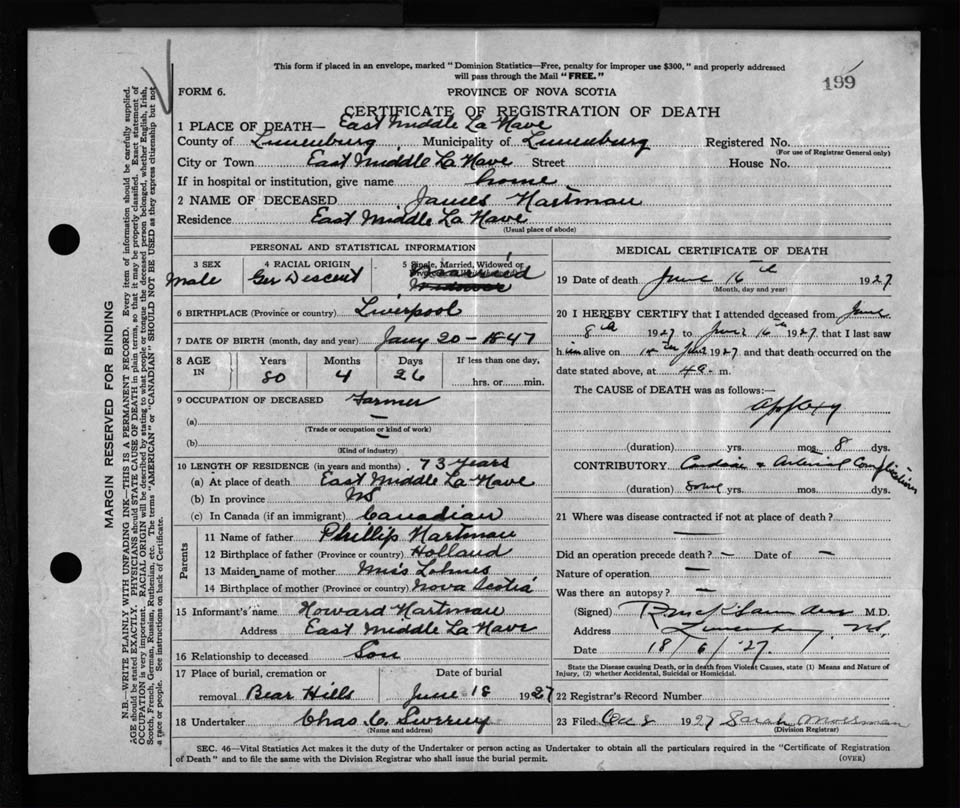 This form if placed in an envelope, marked "Dominion Statistics—Free, penalty for improper use $300," and properly addressed
will pass through the Mail "FREE."
199
FORM 6.
PROVINCE OF NOVA SCOTIA
CERTIFICATE OF REGISTRATION OF DEATH
1 PLACE OF DEATH— East Middle La Have
County of Lunenburg Municipality of Lunenburg Registered No.
(For use of Registrar General only)
City or Town East Middle La Have Street House No.
If in hospital or institution, give name home
2 NAME OF DECEASED James Hartman
Residence East Middle La Have
(Usual place of abode)
PERSONAL AND STATISTICAL INFORMATION
3 SEX 4 RACIAL ORIGIN 5 Single, Married, Widowed or
Male Ger Descent Married
Widower
6 BIRTHPLACE (Province or country) Liverpool
7 DATE OF BIRTH (month, day and year) Jany 20 – 1847
8 AGE IN Years Months Days If less than one day,
80 4 26 hrs. or min.
9 OCCUPATION OF DECEASED Farmer
(a) —
(Trade or occupation or kind of work)
(b) —
(Kind of industry)
10 LENGTH OF RESIDENCE (in years and months) 73 years
(a) At place of death East Middle La Have
(b) In province NS
(c) In Canada (if an immigrant) Canadian
Parents
11 Name of father Phillip Hartman
12 Birthplace of father (Province or country) Holland
13 Maiden name of mother Miss Lohnes
14 Birthplace of mother (Province or country) Nova Scotia
15 Informant's name Howard Hartman
Address East Middle La Have
16 Relationship to deceased Son
17 Place of burial, cremation or Date of burial
removal Bear Hills June 18 1927
18 Undertaker Chas C.
(Name and address)
MEDICAL CERTIFICATE OF DEATH
19 Date of death June 16th 1927
(Month, day and year)
20 I HEREBY CERTIFY that I attended deceased from June
8th 1927 to June 16th 1927 that I last saw
him alive on June 1927 and that death occurred on the
date stated above, at 4 a. m.
The CAUSE of DEATH was as follows:—
(duration) yrs. mos. 8 dys.
CONTRIBUTORY Cardiac + Arterial
(duration) some yrs. mos. dys.
21 Where was disease contracted if not at place of death?
—
Did an operation precede death? – Date of –
Nature of operation —
Was there an autopsy? –
(Signed) M.D.
Address Lunenburg, NS.
Date 18/6/'27.
State the Disease causing Death, or in death from Violent Causes, state (1) Means and Nature of
Injury, (2) whether Accidental, Suicidal or Homicidal.
22 Registrar's Record Number
23 Filed Oct 8 1927 Sarah
(Division Registrar)
SEC. 46—Vital Statistics Act makes it the duty of the Undertaker or person acting as Undertaker to obtain all the particulars required in the "Certificate of Registration
of Death" and to file the same with the Division Registrar who shall issue the burial permit.
(OVER)
MARGIN RESERVED FOR BINDING
N.B.—WRITE PLAINLY WITH UNFADING INK—THIS IS A PERMANENT RECORD. Every item of information should be carefully supplied.
AGE should be stated EXACTLY. PHYSICIANS should STATE CAUSE OF DEATH in plain terms, so that it may be properly classified. Exact statement of
OCCUPATION is very important. RACIAL ORIGIN will be described by stating to what people or tongue the deceased person belonged, whether English, Irish,
Scotch, French, German, Russian, Ruthenian, etc. The terms "AMERICAN" or "CANADIAN" SHOULD NOT BE USED as they express citizenship but not
a race or people. See instructions on back of Certificate.